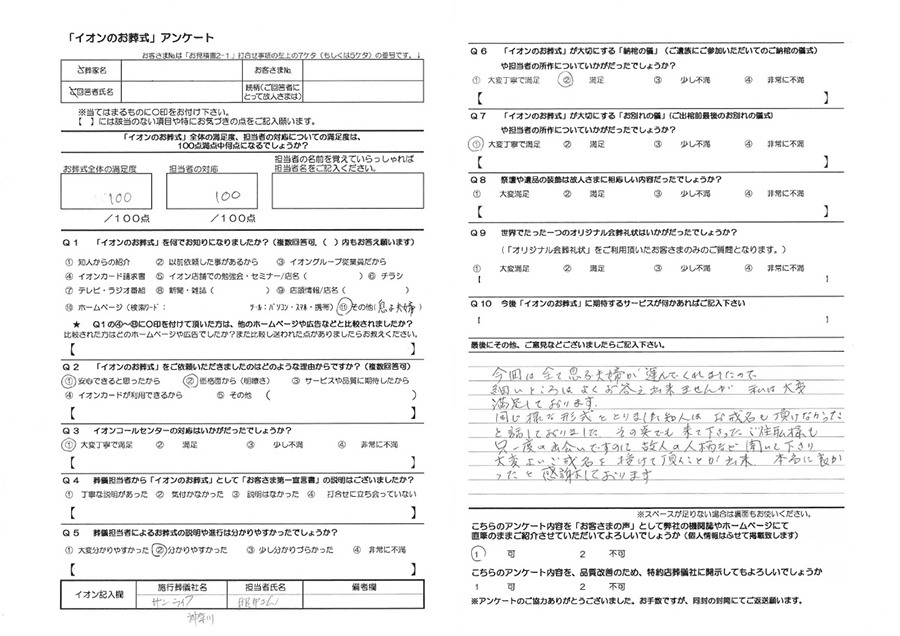 「イオンのお葬式」アンケート
お客さま№は「お見積書2-1」打合せ事項の左上の7ケタ（もしくは5ケタ）の番号です。↓
ご葬家名 お客さま№
ご回答者氏名 続柄（ご回答者にとって故人さまは）
※当てはまるものに○印をお付け下さい。
【　】には該当のない項目や特にお気づきの点をご記入願います。
「イオンのお葬式」全体の満足度、担当者の対応についての満足度は、
100点満点中何点になるでしょうか？
お葬式全体の満足度 担当者の対応 担当者の名前を覚えていらっしゃれば担当者名をご記入ください。
100 100
／100点 ／100点
Q1 「イオンのお葬式」を何でお知りになりましたか？（複数回答可,（　）内もお答え願います）
① 知人からの紹介 ② 以前依頼した事があるから ③ イオングループ従業員だから
④ イオンカード請求書 ⑤ イオン店舗での勉強会・セミナー/店名（　） ⑥ チラシ
⑦ テレビ・ラジオ番組 ⑧ 新聞・雑誌（　） ⑨ 店頭情報/店名（　）
⑩ ホームページ（検索ワード： ツール：パソコン・スマホ・携帯） ⑪ その他（息子夫婦）
★ Q1の④～⑪に○印を付けて頂いた方は、他のホームページや広告などと比較されましたか？
比較された方はどのホームページや広告でしたか？また比較し迷われた点がありましたらお教えください。
【　】
Q2 「イオンのお葬式」をご依頼いただきましたのはどのような理由からですか？（複数回答可）
① 安心できると思ったから ② 価格面から（明瞭さ） ③ サービスや品質に期待したから
④ イオンカードが利用できるから ⑤ その他（　）
【　】
Q3 イオンコールセンターの対応はいかがだったでしょうか？
① 大変丁寧で満足 ② 満足 ③ 少し不満 ④ 非常に不満
【　】
Q4 葬儀担当者から「イオンのお葬式」として「お客さま第一宣言書」の説明はございましたか？
① 丁寧な説明があった ② 気付かなかった ③ 説明はなかった ④ 打合せに立ち会っていない
【　】
Q5 葬儀担当者によるお葬式の説明や進行は分かりやすかったでしょうか？
① 大変分かりやすかった ② 分かりやすかった ③ 少し分かりづらかった ④ 非常に不満
【　】
イオン記入欄 施行葬儀社名 担当者氏名 備考欄
サンライフ
神奈川
Q6 「イオンのお葬式」が大切にする「納棺の儀」（ご遺族にご参加いただいてのご納棺の儀式）
や担当者の所作についていかがだったでしょうか？
① 大変丁寧で満足 ② 満足 ③ 少し不満 ④ 非常に不満
【　】
Q7 「イオンのお葬式」が大切にする「お別れの儀」（ご出棺前最後のお別れの儀式）
や担当者の所作についていかがだったでしょうか？
① 大変丁寧で満足 ② 満足 ③ 少し不満 ④ 非常に不満
【　】
Q8 祭壇や遺品の装飾は故人さまに相応しい内容だったでしょうか？
① 大変満足 ② 満足 ③ 少し不満 ④ 非常に不満
【　】
Q9 世界でたった一つのオリジナル会葬礼状はいかがだったでしょうか？
（「オリジナル会葬礼状」をご利用頂いたお客さまのみのご質問となります。）
① 大変満足 ② 満足 ③ 少し不満 ④ 非常に不満
【　】
Q10 今後「イオンのお葬式」に期待するサービスが何かあればご記入下さい
【　】
最後にその他、ご意見などございましたらご記入下さい。
今回は全て息子夫婦が運んでくれましたので
細いところはよくお答え出来ませんが 私は大変
満足しております。
同じ様な形式をとりました知人は お戒名も頂けなかった
と話しておりました その点でも 来て下さったご住職様も
只一度の出会いですのに 故人の人柄など聞いて下さり
大変よいご戒名を授けて頂くことが出来 本当に良か
ったと感謝しております
※スペースが足りない場合は裏面もお使いください。
こちらのアンケート内容を「お客さまの声」として弊社の機関誌やホームページにて
直筆のままご紹介させていただいてよろしいでしょうか（個人情報はふせて掲載致します）
1 可 2 不可
こちらのアンケート内容を、品質改善のため、特約店葬儀社に開示してもよろしいでしょうか
1 可 2 不可
※アンケートのご協力ありがとうございました。お手数ですが、同封の封筒にてご返送願います。